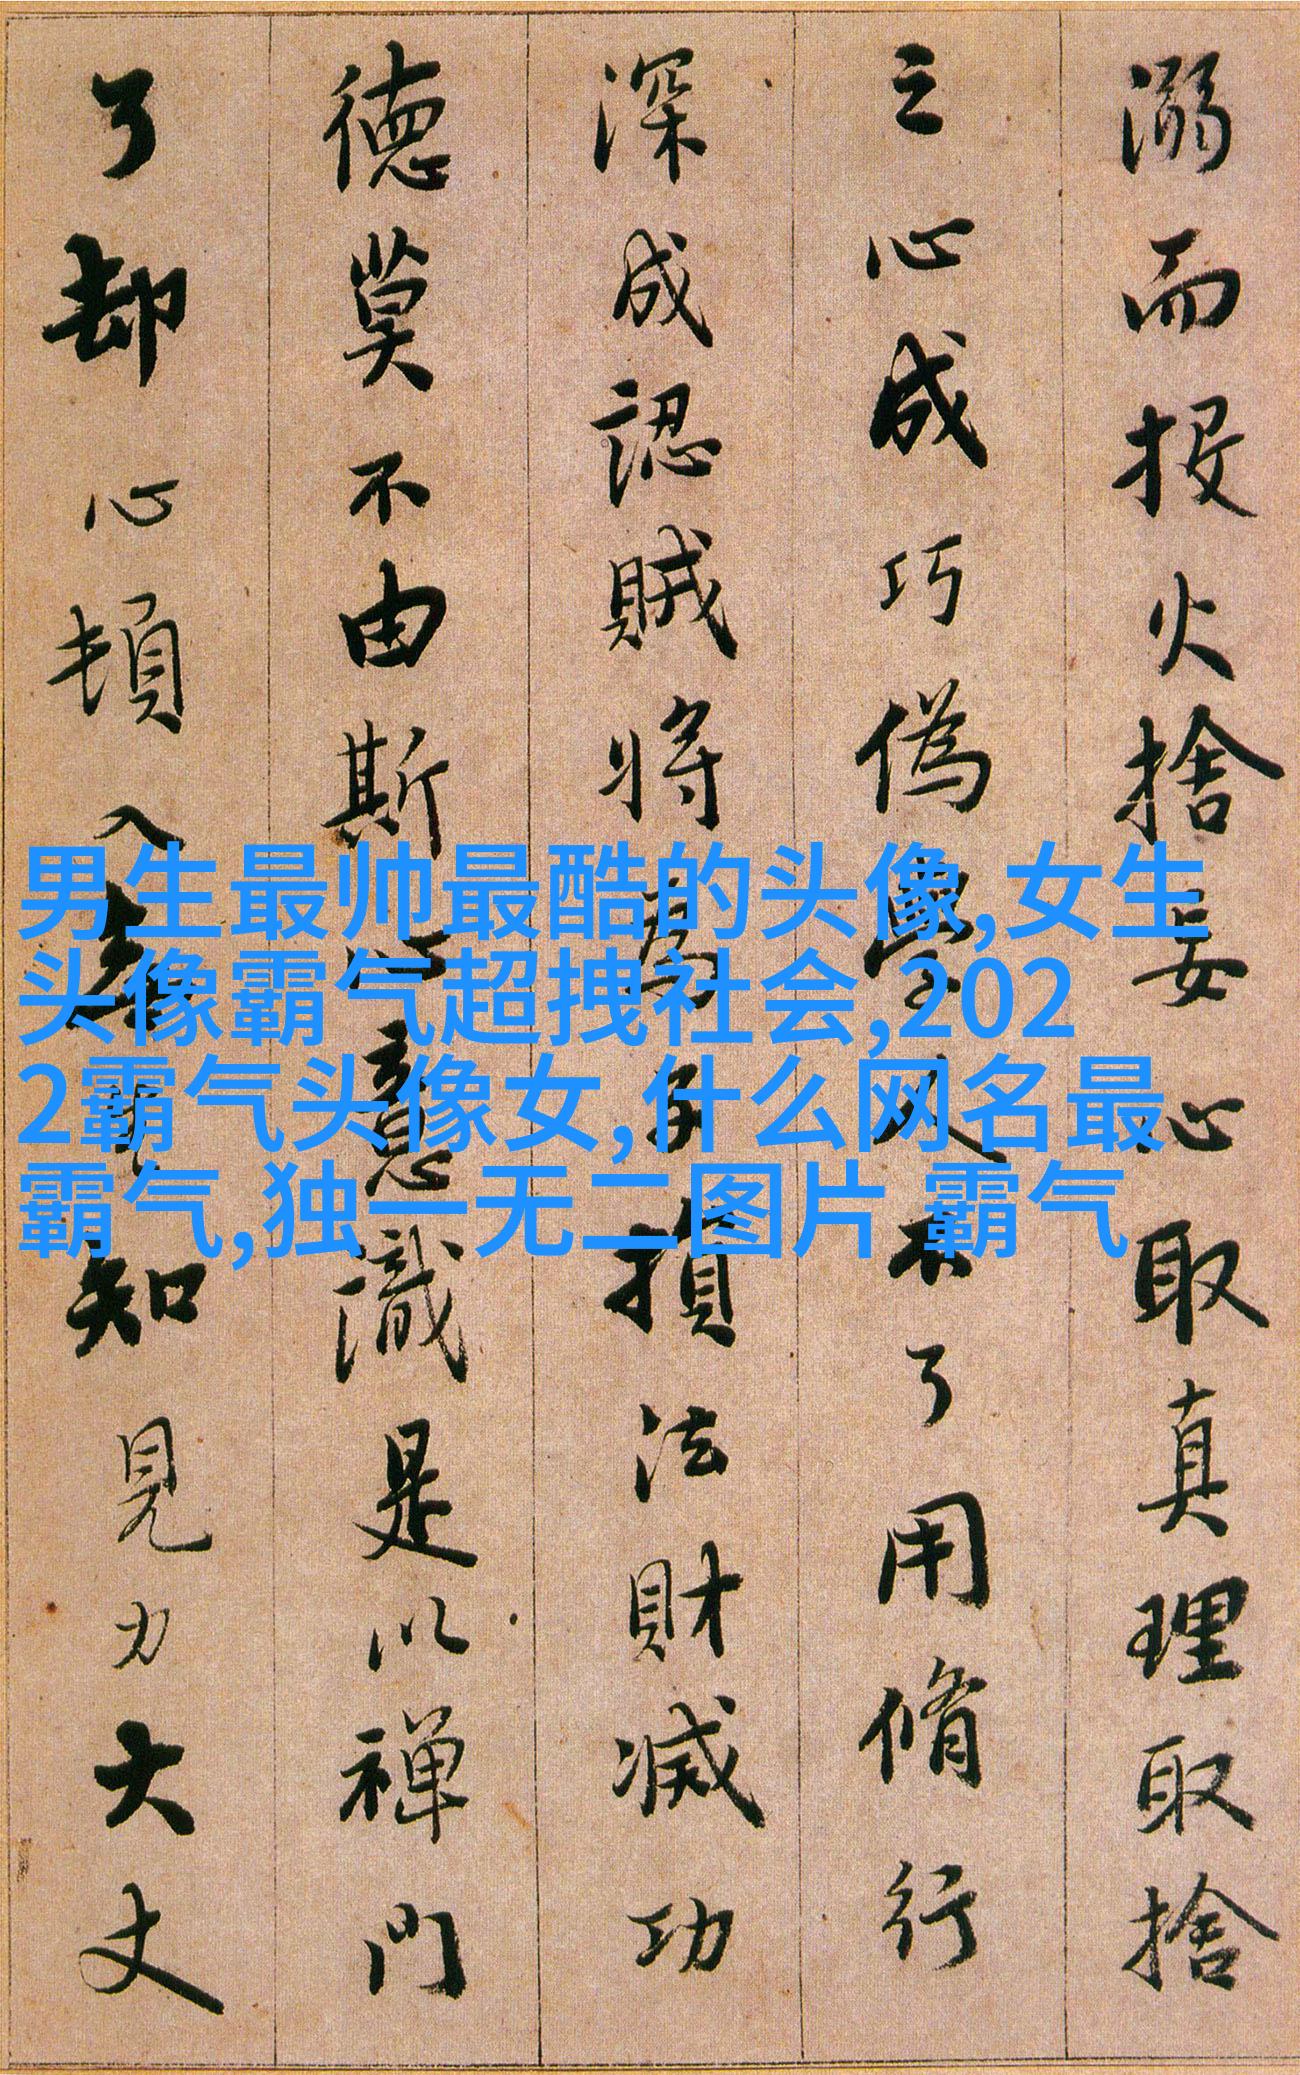 溺而投火捨妄心取真理取捨
之心成巧偽學人不了用脩行
深成認賊將為子損法財滅功
德莫不由斯心意識是以禪門
了却心頓入無生知見力大丈
男生最帅最酷的头像,女生
头像霸气超拽社会,202
2霸气头像女,什么网名最
霸气,独一无二图片 霸气